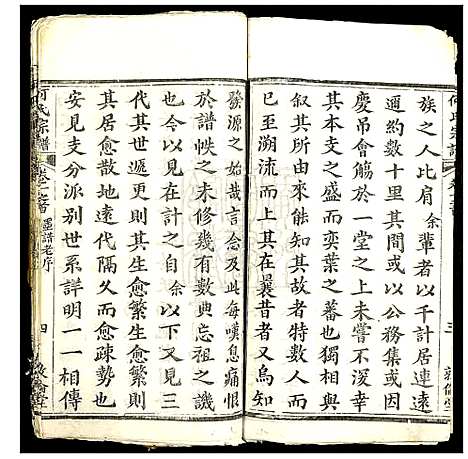 何氏宗譜
族之人比肩余輩者以千計居連遠
邇約數十里其間或以公務集或因
慶吊會觴於一堂之上未嘗不湲幸
其本支之盛而奕葉之蕃也獨相與
析其所由來能知其故者特數人而
已至溯流而上在曩昔者又烏知
三
發源之始哉言念及此每嘆息痛恨
於譜帙之未修幾有數典忘祖之譏
也今以見在計之自余以下又見三
代其世遞更則愈繁生愈繁生愈繁則
其居愈散地遠代隔久而愈疎勢也
安見支分派別世系詳明一一相傳
何氏宗譜
卷之首
墨譜老序
四
敦倫堂